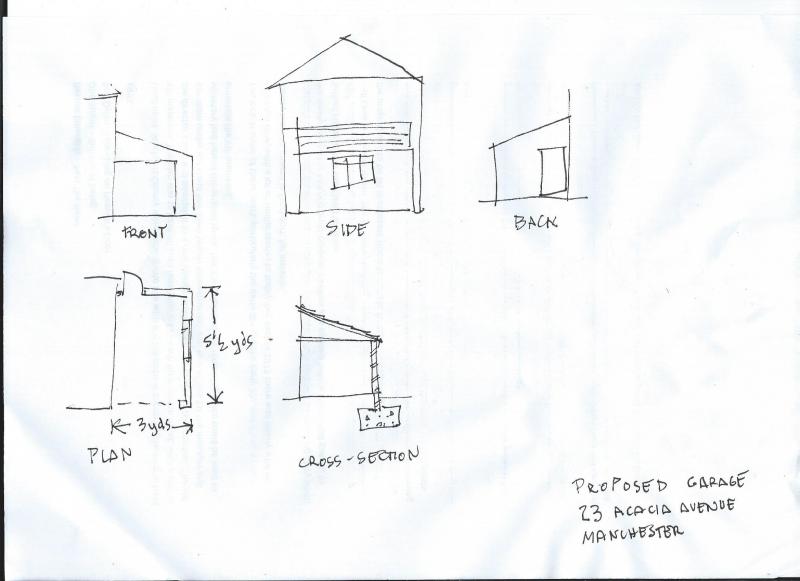 FRONT
SIDE
BACK
5½ yds
3 yds
PLAN
CROSS-SECTION
PROPOSED GARAGE
23 ACACIA AVENUE
MANCHESTER